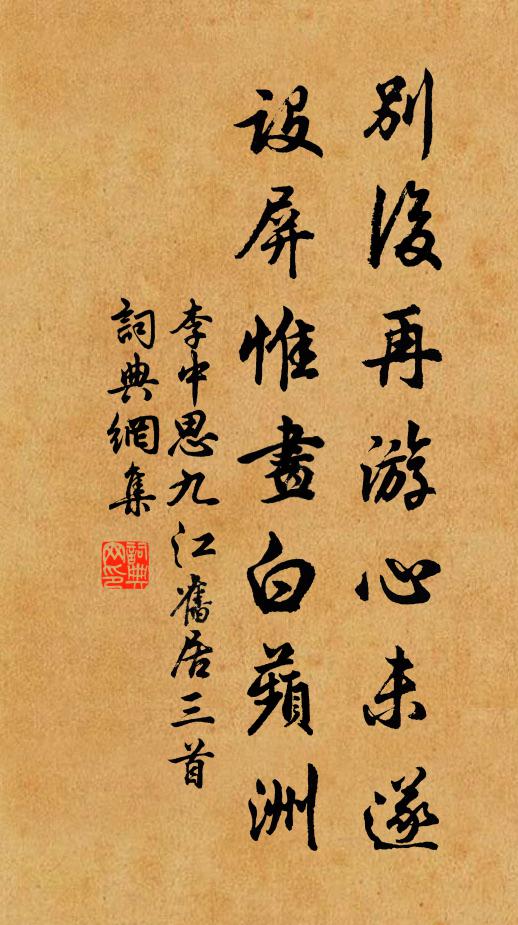 別後再游心未遂
設屏惟畫白蘋洲
李中思九江舊居三首
詞典網集
詞典網印